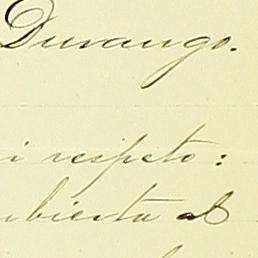 Durango.
i respeto:
ubierta al